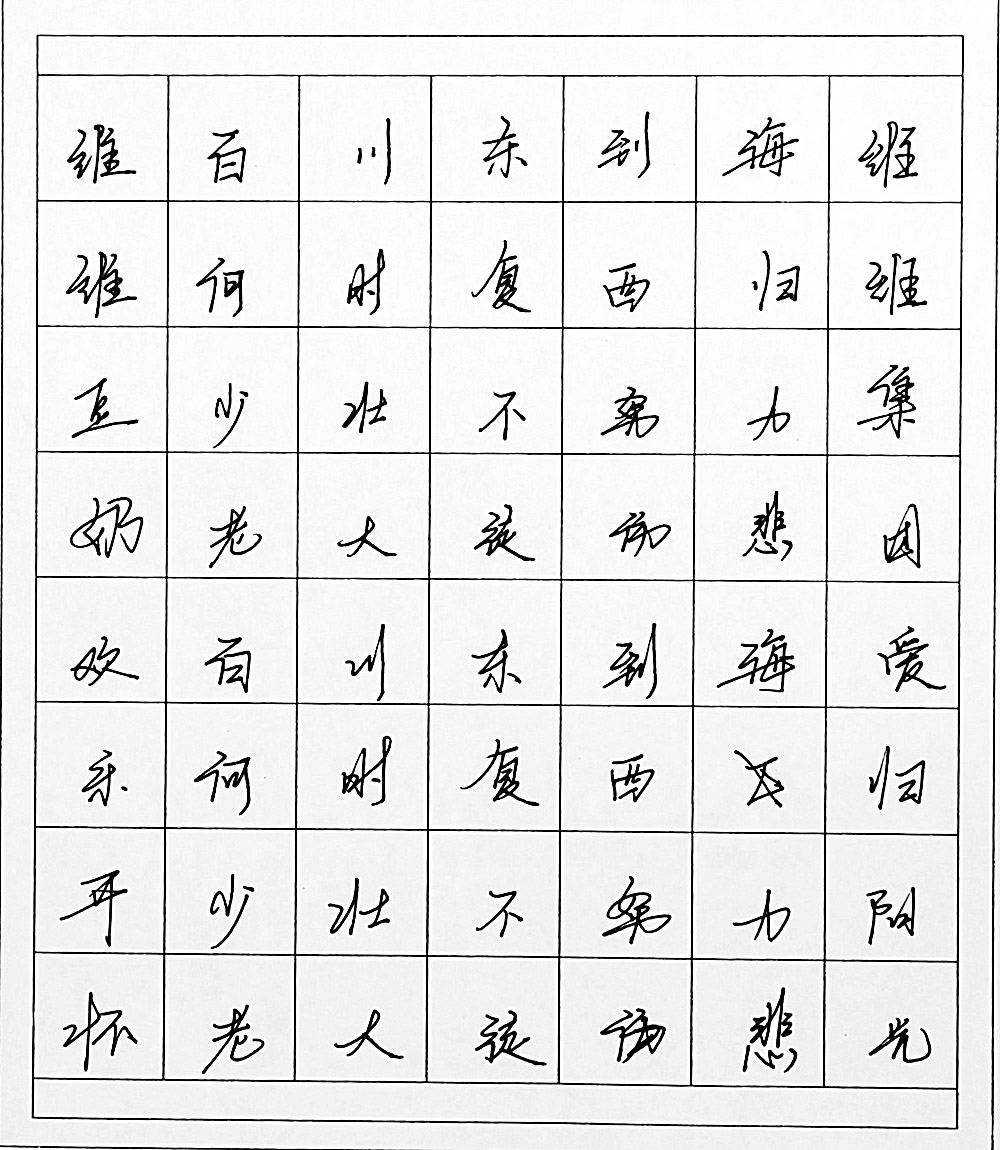 维百川东到海维
维何时复西归维
豆少壮不努力集
奶老大徒伤悲因
欢百川东到海爱
乐何时复西归
耳少壮不努力阴
怀老大徒伤悲光